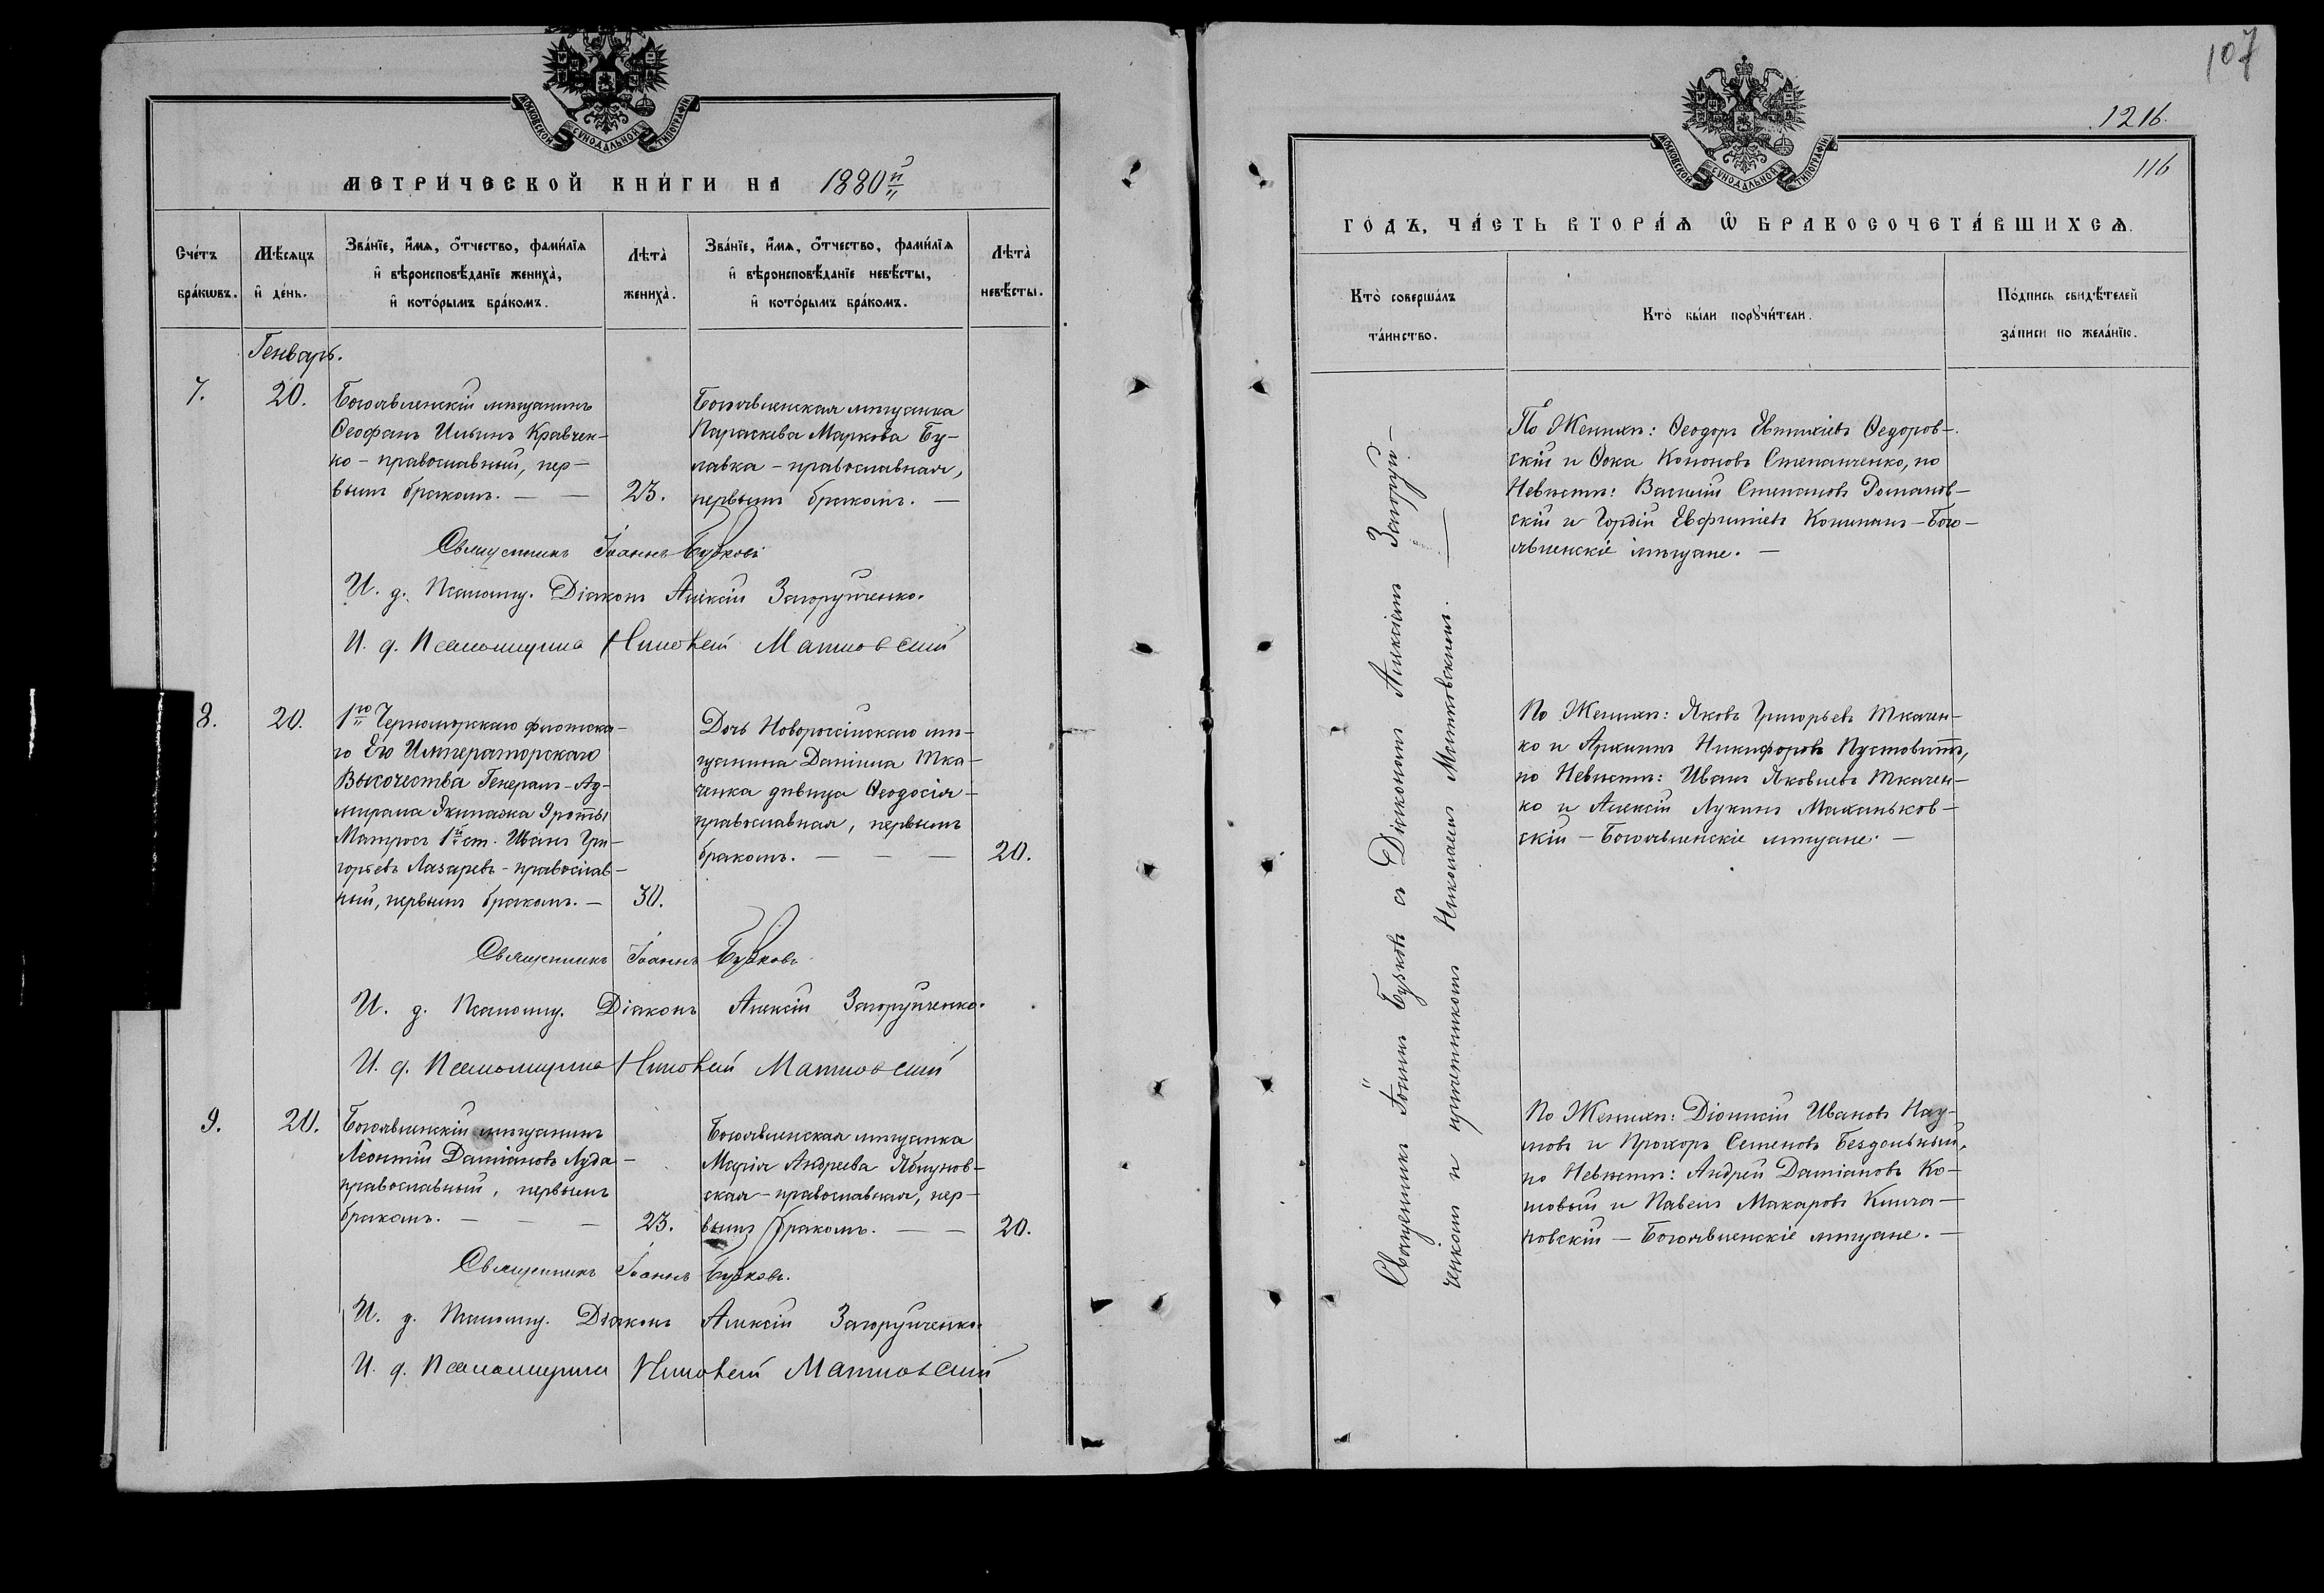 МОСКОВСКОЙ СѴНОДАЛЬНОЙ ТИПОГРАФІИ
МЕТРИ́ЧЕСКОЙ КНИ́ГИ НА 1880й
Сче́тъ бра́кѡвъ.
Мѣ́сяцъ и де́нь.
Зва́нїе, и́мя, о́тчество, фами́лїя
и вѣроисповѣ́данїе жениха̀,
и кото́рымъ бра́комъ.
Лѣта̀ жениха̀.
Зва́нїе, и́мя, о́тчество, фами́лїя
и вѣроисповѣ́данїе невѣ́сты,
и кото́рымъ бра́комъ.
Лѣта̀ невѣ́сты.
Генварь.
7.
20.
Богоявленскій мѣщанинъ
Ѳеофанъ Ильинъ Кравчен-
ко - православный, пер-
вымъ бракомъ. — —
23.
Богоявленская мѣщанка
Параскева Маркова Бу-
лавка - православная,
первымъ бракомъ. —
Священникъ Іоаннъ Бужковъ
И. д. Псаломщ. Діаконъ Алексій Загоруйченко.
И. д. Псаломщика Николай Матковский
8.
20.
1го Черноморскаго флотска-
го Его Императорскаго
Высочества Генералъ-Ад-
мирала Экипажа 9 роты
Матросъ 1й ст. Иванъ Гри-
горьевъ Лазаревъ - православ-
ный, первымъ бракомъ. —
30.
Дочь Новороссійскаго мѣ-
щанина Даніила Тка-
ченка дѣвица Ѳеодосія -
православная, первымъ
бракомъ. — — —
20.
Священникъ Іоаннъ Бужковъ
И. д. Псаломщ. Діаконъ Алексій Загоруйченко.
И. д. Псаломщика Николай Матковский
9.
20.
Богоявленскій мѣщанинъ
Леонтій Даміановъ Луда -
православный, первымъ
бракомъ. — — —
23.
Богоявленская мѣщанка
Марія Андреева Яблунов-
ская - православная, пер-
вымъ бракомъ. — —
20.
Священникъ Іоаннъ Бужковъ.
И. д. Псаломщ. Діаконъ Алексій Загоруйченко.
И. д. Псаломщика Николай Матковский
107
1216.
116
МОСКОВСКОЙ СѴНОДАЛЬНОЙ ТИПОГРАФІИ
ГО́ДЪ, ЧА́СТЬ ВТОРА́Я Ѡ БРАКОСОЧЕТА́ВШИХСЯ.
Кто̀ соверша́лъ
та́инство.
Кто̀ бы́ли порꙋчи́тели.
По́дпись свидѣ́телей
за́писи по жела́нїю.
Священникъ Іоаннъ Бужковъ съ Діакономъ Алексіемъ Загоруй-
ченкомъ и причетникомъ Николаемъ Матковскимъ. —
По Женихѣ: Ѳеодоръ Евтихіевъ Ѳедоров-
скій и Ѳока Кононовъ Степанченко, по
Невѣстѣ: Василій Степановъ Романов-
скій и Гордій Евфиміевъ — Бого-
явленскіе мѣщане. —
По Женихѣ: Яковъ Григорьевъ Ткачен-
ко и Архипъ Никифоровъ Пустовитъ,
по Невѣстѣ: Иванъ Яковлевъ Ткачен-
ко и Алексій Лукинъ Маханьков-
скій — Богоявленскіе мѣщане. —
По Женихѣ: Діонисій Ивановъ Нау-
мовъ и Прохоръ Семеновъ Бездольный,
по Невѣстѣ: Андрей Даміановъ Ко-
товый и Павелъ Макаровъ Клича-
новскій — Богоявленскіе мѣщане. —